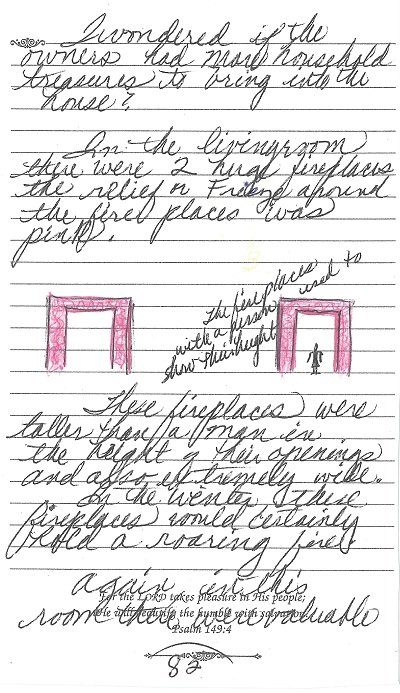 I wondered if the
owners had more household
treasures to bring into the
house?
In the livingroom
there were 2 huge fireplaces
the relief or Frieze around
the fire places was
pink.
The fireplaces
with a person used to
show their height
These fireplaces were
taller than a man in
the height of their openings
and also extremely wide.
In the winter these
fireplaces would certainly
hold a roaring fire.
again in this
For the LORD takes pleasure in His people;
room there were valuable
He will beautify the humble with salvation.
Psalm 149:4
82